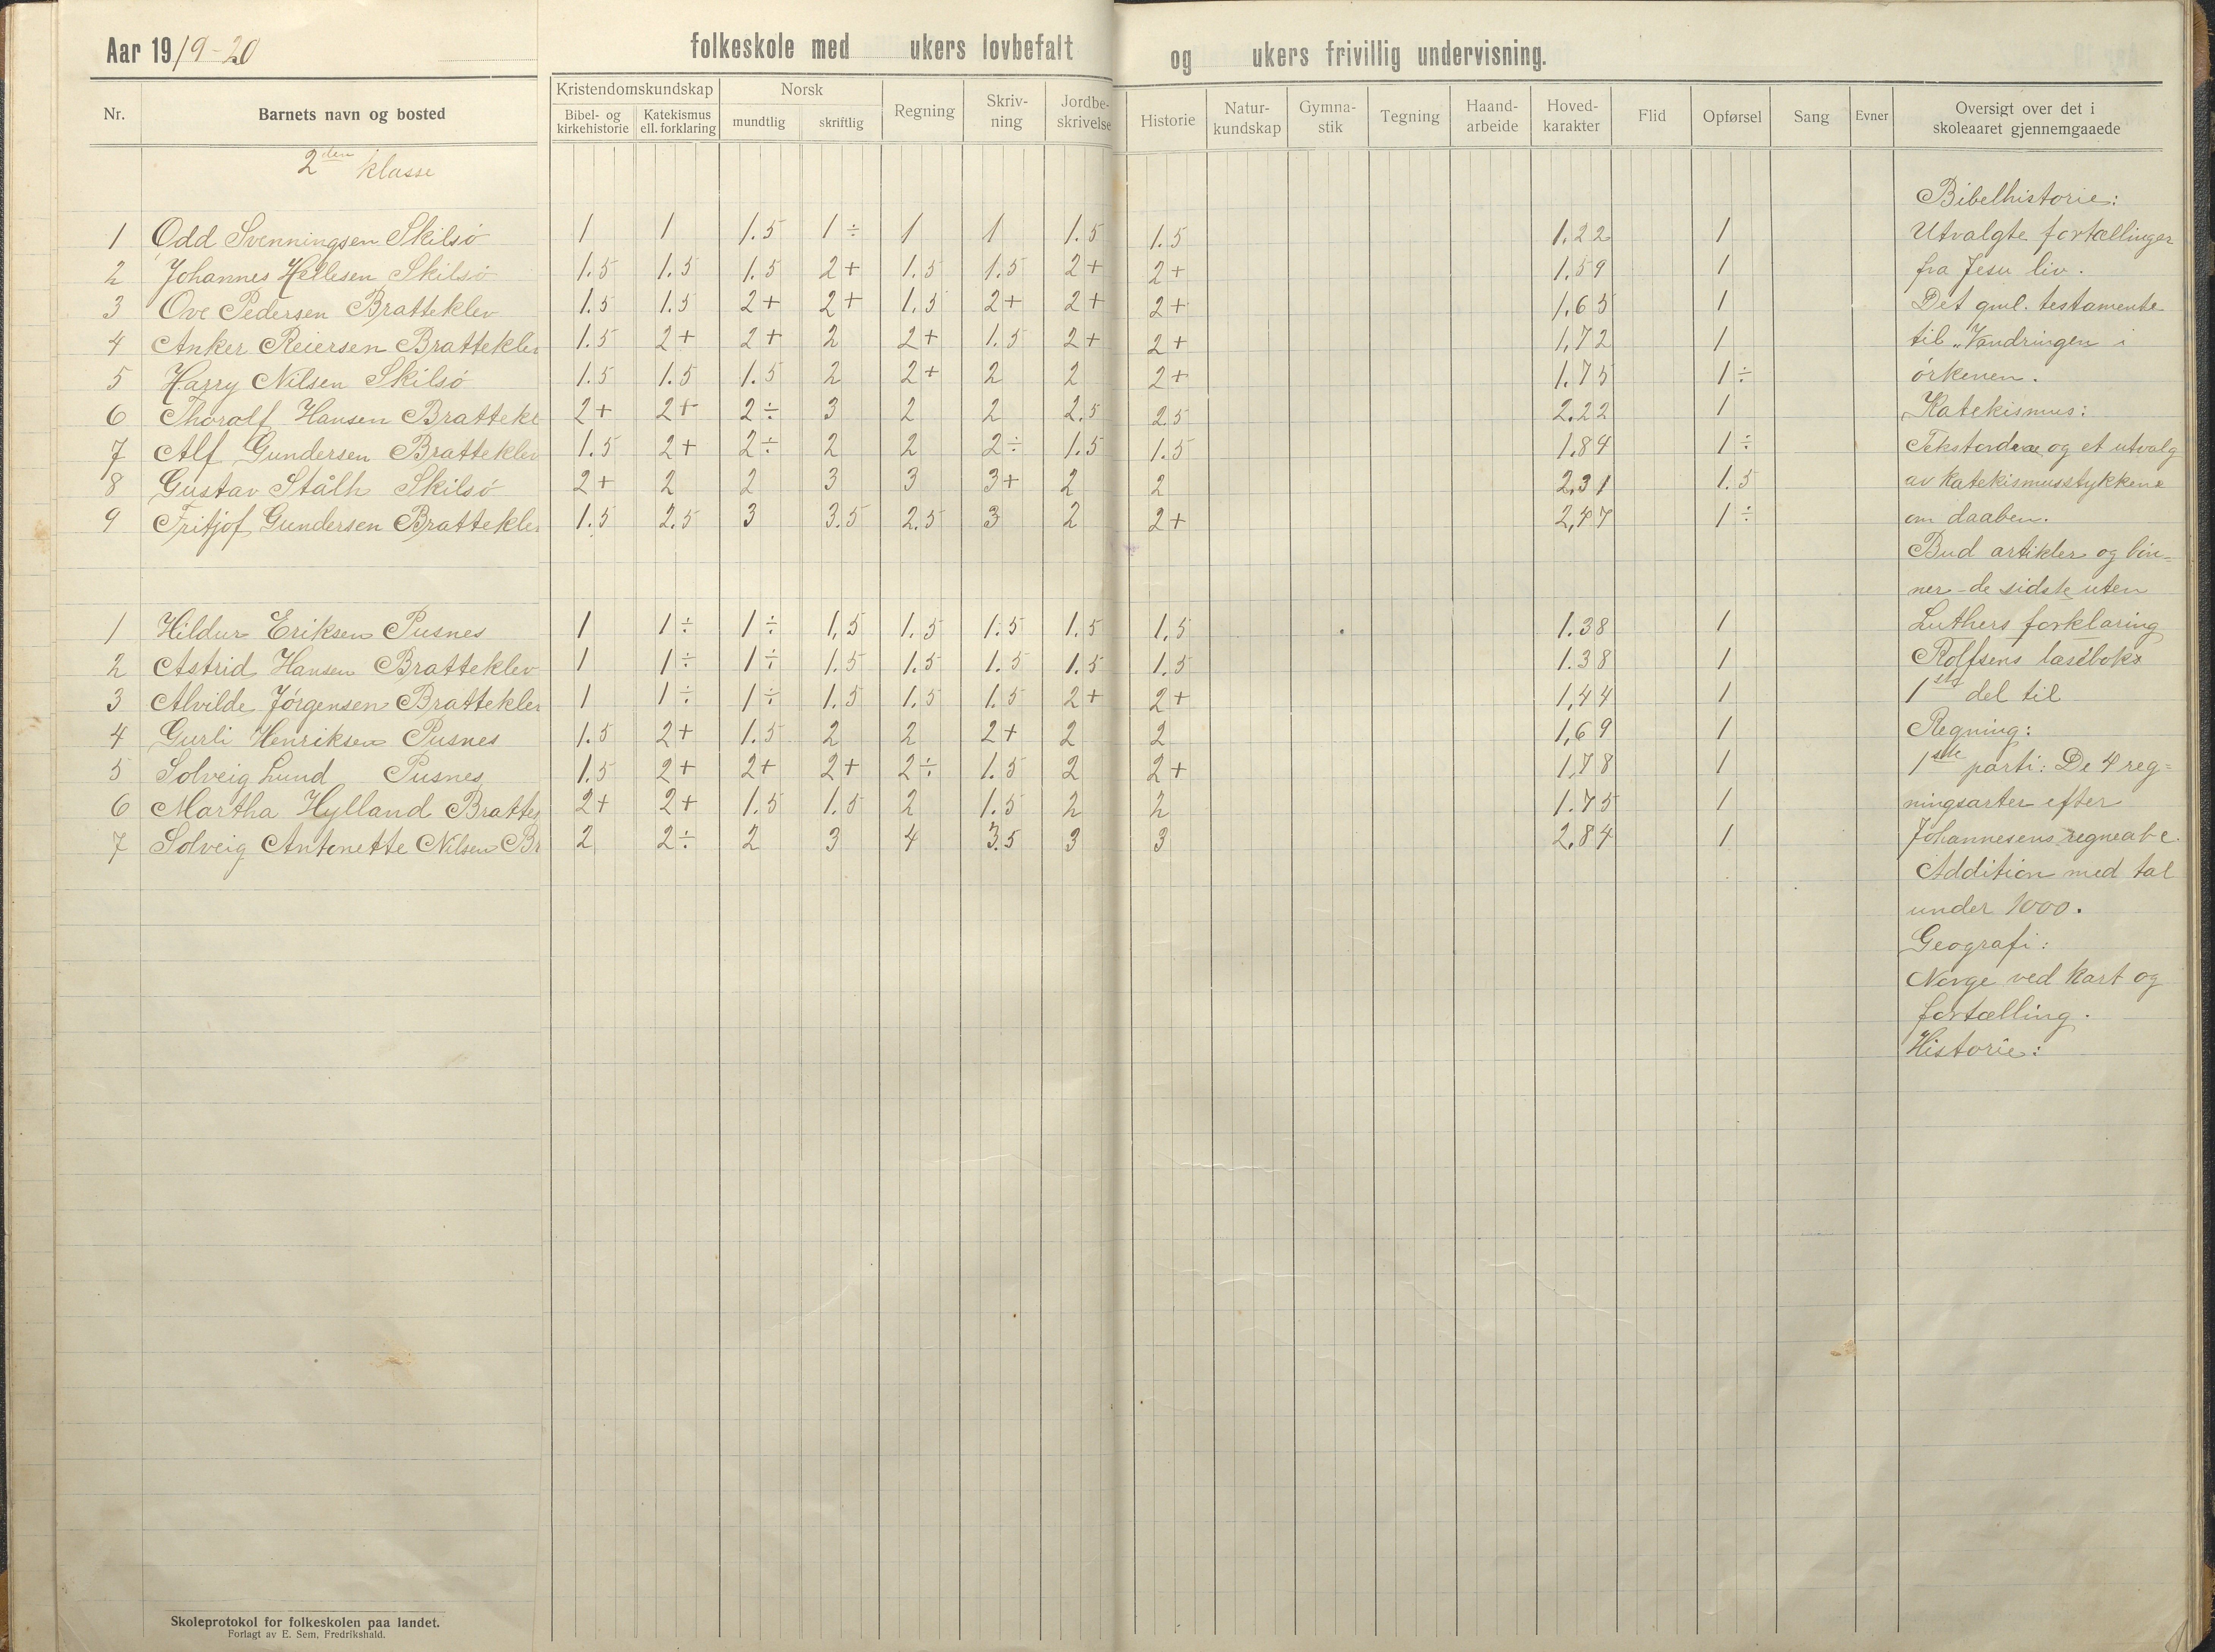 Aar 1919-20
folkeskole med ukers lovbefalt og ukers frivillig undervisning.
Nr. Barnets navn og bosted Kristendomskundskap Bibel- og kirkehistorie Katekismus ell. forklaring Norsk mundtlig skriftlig Regning Skriv-ning Jordbe-skrivelse Historie Natur-kundskap Gymna-stik Tegning Haand-arbeide Hoved-karakter Flid Opførsel Sang Evner Oversigt over det i skoleaaret gjennemgaaede
2den klasse
1 Odd Svenningsen Skilsö 1 1 1.5 1÷ 1 1 1.5 1.5 1.22 1
2 Johannes Hellesen Skilsö 1.5 1.5 1.5 2+ 1.5 1.5 2+ 2+ 1.59 1
3 Ove Pedersen Bratteklev 1.5 1.5 2+ 2+ 1.5 2+ 2+ 2+ 1,65 1
4 Anker Reiersen Bratteklev 1.5 2+ 2+ 2 2+ 1.5 2+ 2+ 1,72 1
5 Harry Nilsen Skilsö 1.5 1.5 1.5 2 2+ 2 2 2+ 1.75 1÷
6 Thoralf Hansen Brattekl 2+ 2+ 2÷ 3 2 2 2.5 2.5 2.22 1
7 Alf Gundersen Bratteklev 1.5 2+ 2÷ 2 2 2÷ 1.5 1.5 1.84 1÷
8 Gustav Stålh Skilsö 2+ 2 2 3 3 3+ 2 2 2,31 1.5
9 Fritjof Gundersen Bratteklev 1.5 2.5 3 3.5 2.5 3 2 2+ 2,47 1÷
1 Hildur Eriksen Pusnes 1 1÷ 1÷ 1,5 1.5 1.5 1.5 1,5 1.38 1
2 Astrid Hansen Bratteklev 1 1÷ 1÷ 1.5 1.5 1.5 1.5 1.5 1.38 1
3 Alvilde Jörgensen Bratteklev 1 1÷ 1÷ 1.5 1.5 1.5 2+ 2+ 1,44 1
4 Gurli Henriksen Pusnes 1.5 2+ 1.5 2 2 2+ 2 2 1,69 1
5 Solveig Lund Pusnes 1.5 2+ 2+ 2+ 2÷ 1.5 2 2+ 1,78 1
6 Martha Hylland Bratte 2+ 2+ 1.5 1.5 2 1.5 2 2 1.75 1
7 Solveig Antonette Nilsen Br 2 2÷ 2 3 4 3.5 3 3 2,84 1
Bibelhistorie:
Utvalgte fortællinger
fra Jesu liv.
Det gml. testamente
til "Vandringen i
örkenen.
Katekismus:
Tekstordene og et utvalg
av katekismusstykkene
om daaben.
Bud artikler og bön-
ner - de sidste uten
Luthers forklaring
Rolfsens læsebok
1ste del til
Regning:
1ste parti: De 4 reg-
ningsarter efter
Johannesens regneabc.
Addition med tal
under 1000.
Geografi:
Norge ved kart og
fortælling.
Historie:
Skoleprotokol for folkeskolen paa landet.
Forlagt av E. Sem, Fredrikshald.